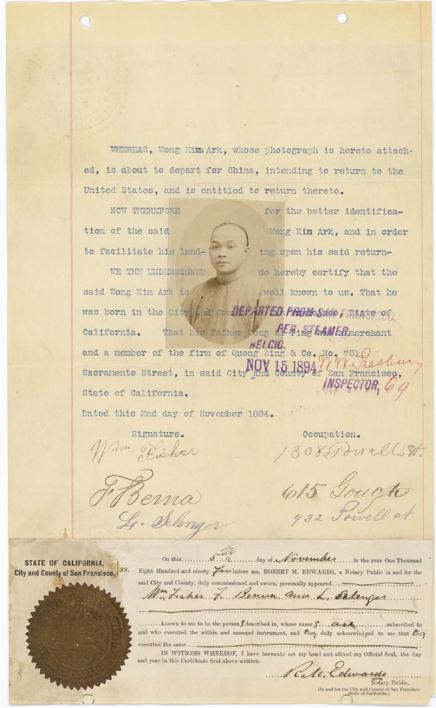 WHEREAS, Wong Kim Ark, whose photograph is hereto attach-
ed, is about to depart for China, intending to return to the
United States, and is entitled to return thereto.
NOW THEREFORE for the better identifica-
tion of the said Wong Kim Ark, and in order
to facilitate his land- ing upon his said return-
WE THE UNDERSIGNED do hereby certify that the
said Wong Kim Ark is well known to us. That he
was born in the City and County of
California. That his father Wong merchant
and a member of the firm of Quong Sing & Co. No. 751
Sacramento Street, in said City and County of San Francisco,
State of California.
DEPARTED FROM SAN FRANCISCO,
PER STEAMER,
BELGIC.
NOV 15 1894
INSPECTOR,
Dated this 2nd day of November 1894.
Signature. Occupation.
Wm Fisher 1308 Powell St.
F Benna 615 Gough
L. Selenger 932 Powell st
STATE OF CALIFORNIA,
City and County of San Francisco. SS.
On this 5th day of November in the year One Thousand
Eight Hundred and ninety four before me, ROBERT M. EDWARDS, a Notary Public in and for the
said City and County, duly commissioned and sworn, personally appeared
Wm Fisher F. Benna and L. Selenger
known to me to be the persons described in, whose names are subscribed to
and who executed the within and annexed instrument, and they duly acknowledged to me that they
executed the same
IN WITNESS WHEREOF, I have hereunto set my hand and affixed my Official Seal, the day
and year in this Certificate first above written.
R. M. Edwards
Notary Public,
(In and for the City and County of San Francisco,
State of California.)